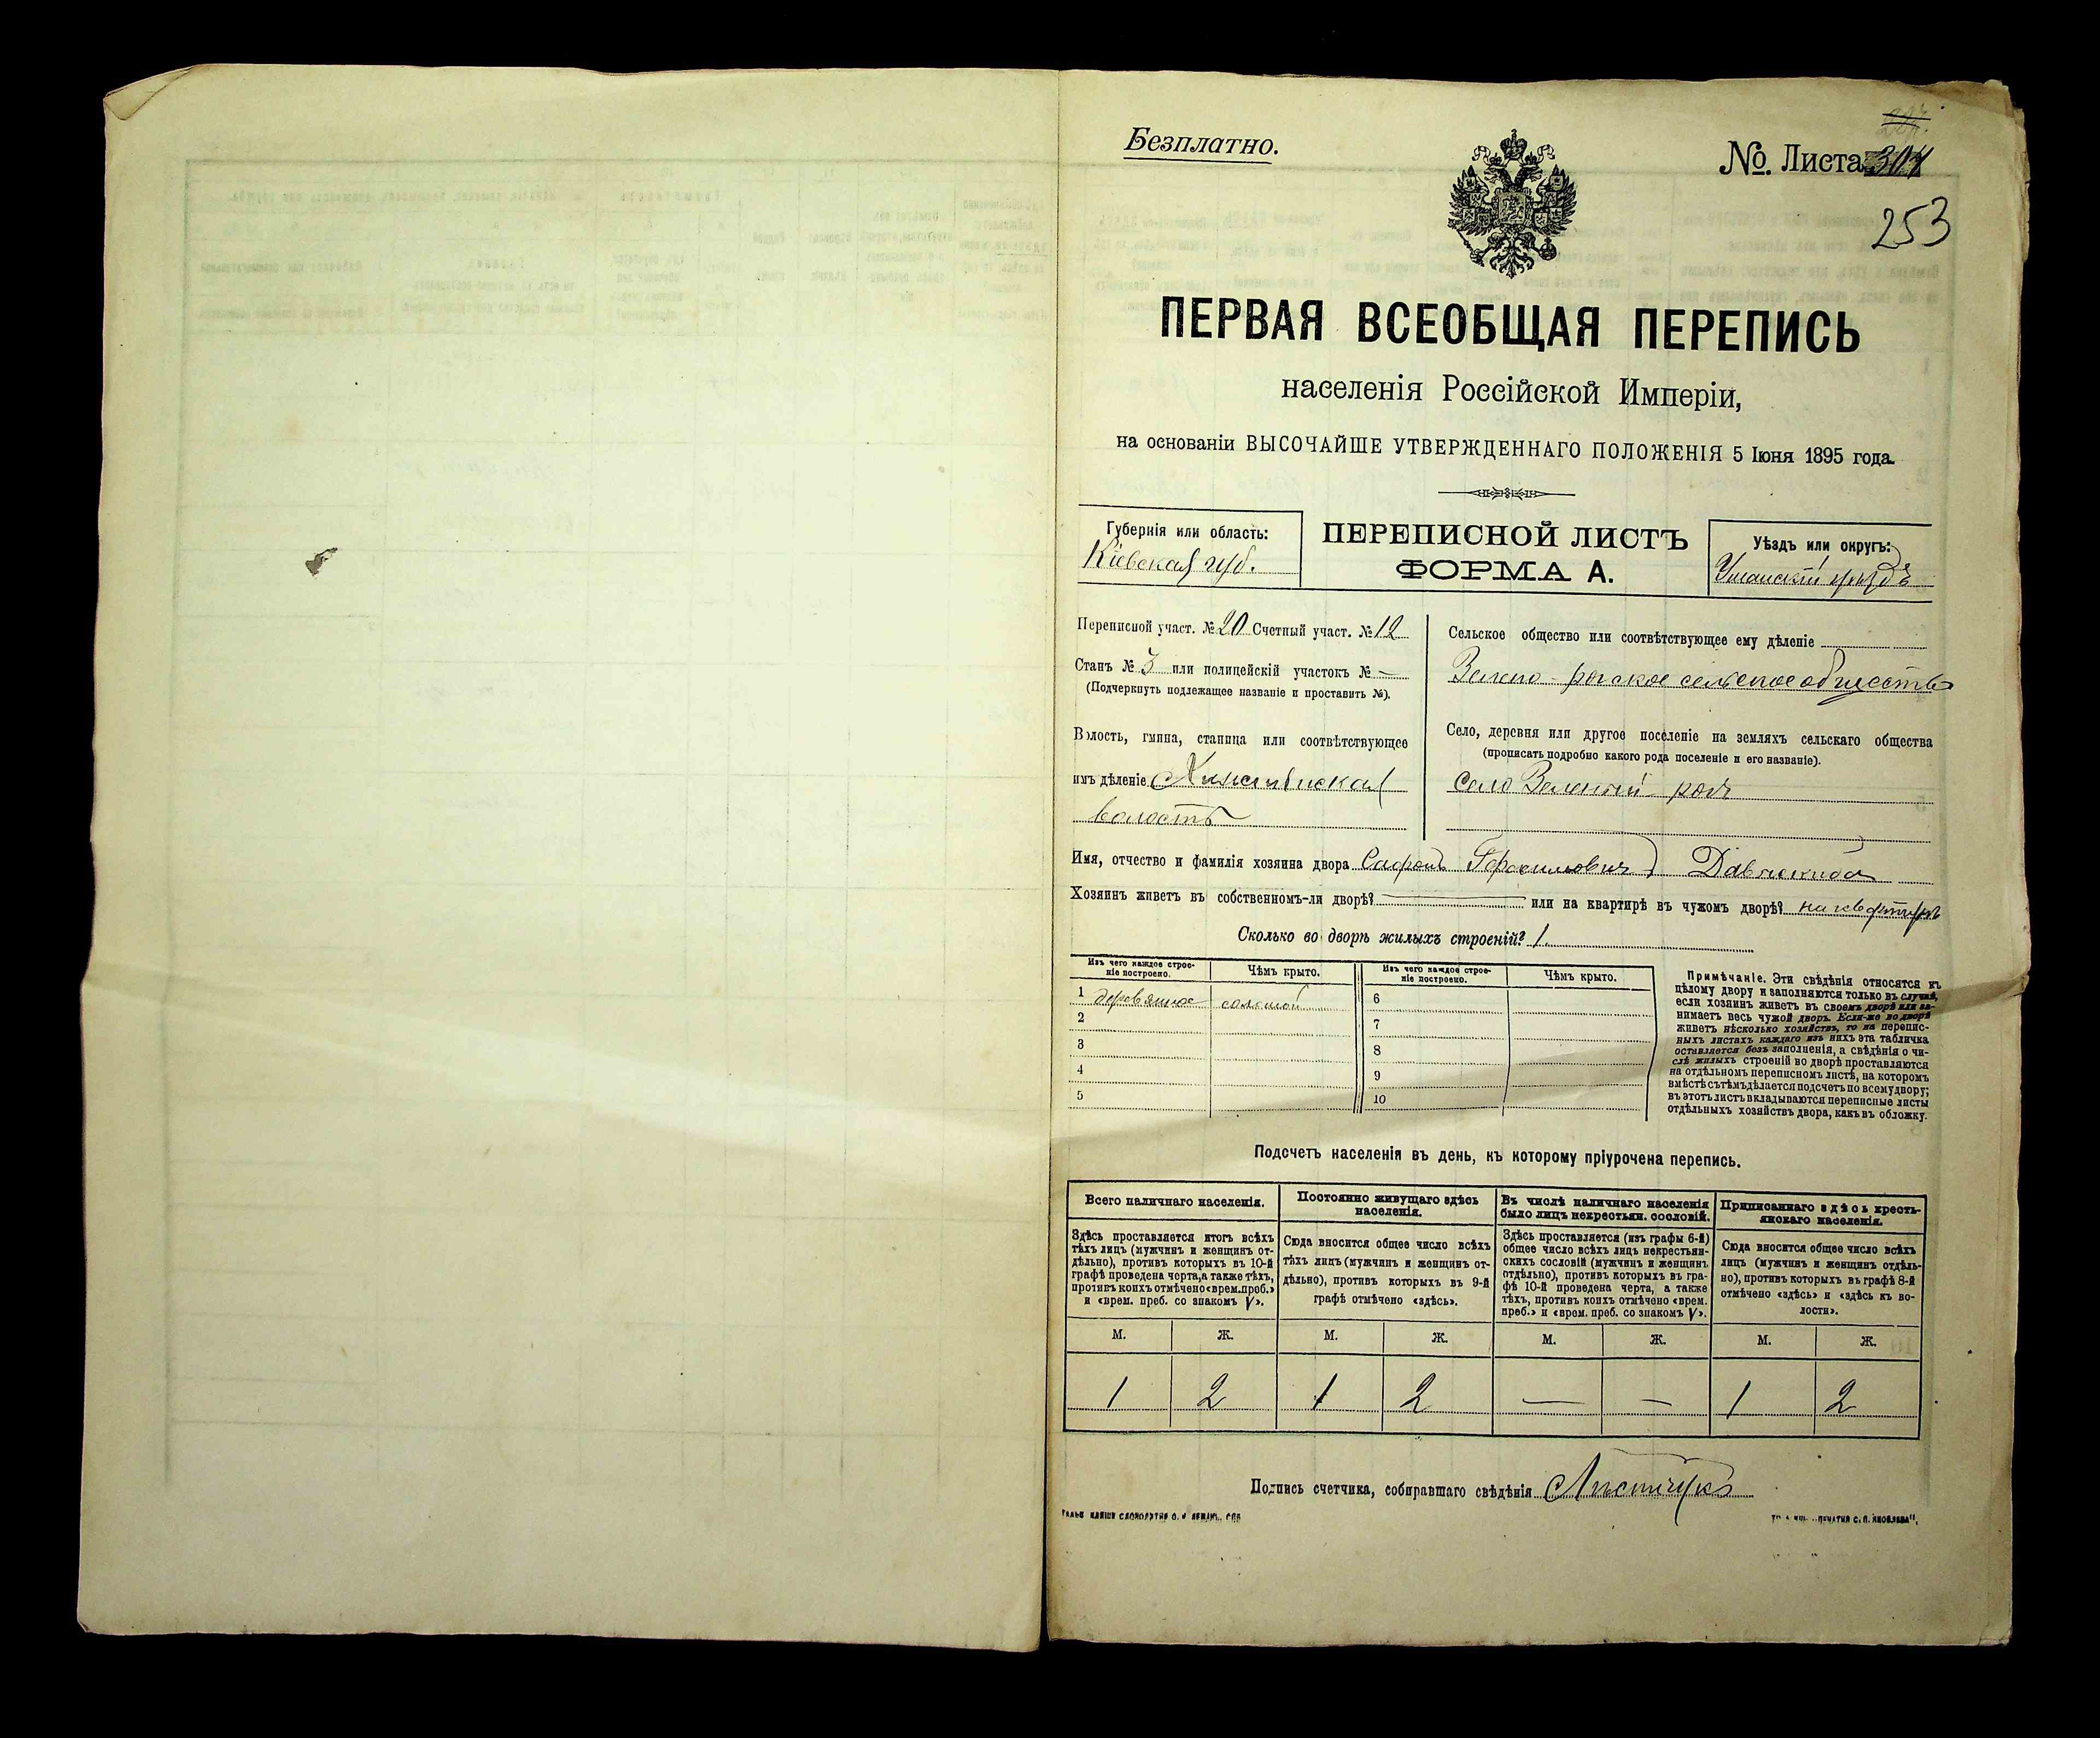 Безплатно.
№ Листа 304
253
ПЕРВАЯ ВСЕОБЩАЯ ПЕРЕПИСЬ
населенія Россійской Имперіи,
на основаніи ВЫСОЧАЙШЕ УТВЕРЖДЕННАГО ПОЛОЖЕНІЯ 5 Іюня 1895 года.
Губернія или область:
Кіевская губ.
ПЕРЕПИСНОЙ ЛИСТЪ
ФОРМА А.
Уѣздъ или округъ:
Уманскій уѣздъ
Переписной участ. № 20 Счетный участ. № 12
Станъ № 3 или полицейскій участокъ № —
(Подчеркнуть подлежащее названіе и проставить №).
Волость, гмина, станица или соотвѣтствующее
имъ дѣленіе
волость
Сельское общество или соотвѣтствующее ему дѣленіе
Зелено-рогское сельское общество
Село, деревня или другое поселеніе на земляхъ сельскаго общества
(прописать подробно какого рода поселеніе и его названіе).
Село Зеленый рогъ
Имя, отчество и фамилія хозяина двора Сафонъ Герасимовичъ
Хозяинъ живетъ въ собственномъ-ли дворѣ? — или на квартирѣ въ чужомъ дворѣ? на квартирѣ
Сколько во дворѣ жилыхъ строеній? 1.
Изъ чего каждое строе-
ніе построено.
Чѣмъ крыто.
Изъ чего каждое строе-
ніе построено.
Чѣмъ крыто.
1 деревянное соломой 6
2 7
3 8
4 9
5 10
Примѣчаніе. Эти свѣдѣнія относятся къ
цѣлому двору и заполняются только въ случаѣ,
если хозяинъ живетъ въ своемъ дворѣ или за-
нимаетъ весь чужой дворъ. Если-же во дворѣ
живетъ нѣсколько хозяйствъ, то на перепис-
ныхъ листахъ каждаго изъ нихъ эта табличка
оставляется безъ заполненія, а свѣдѣнія о чи-
слѣ жилыхъ строеній во дворѣ проставляются
на отдѣльномъ переписномъ листѣ, на которомъ
вмѣстѣ съ тѣмъ дѣлается подсчетъ по всему двору;
въ этотъ листъ вкладываются переписные листы
отдѣльныхъ хозяйствъ двора, какъ въ обложку.
Подсчетъ населенія въ день, къ которому пріурочена перепись.
Всего наличнаго населенія.
Здѣсь проставляется итогъ всѣхъ
тѣхъ лицъ (мужчинъ и женщинъ от-
дѣльно), противъ которыхъ въ 10-й
графѣ проведена черта, а также тѣхъ,
противъ коихъ отмѣчено «врем. преб.»
и «врем. преб. со знакомъ V».
Постоянно живущаго здѣсь
населенія.
Сюда вносится общее число всѣхъ
тѣхъ лицъ (мужчинъ и женщинъ от-
дѣльно), противъ которыхъ въ 9-й
графѣ отмѣчено «здѣсь».
Въ числѣ наличнаго населенія
было лицъ некрестьян. сословій.
Здѣсь проставляется (изъ графы 6-й)
общее число всѣхъ лицъ некрестьян-
скихъ сословій (мужчинъ и женщинъ
отдѣльно), противъ которыхъ въ гра-
фѣ 10-й проведена черта, а также
тѣхъ, противъ коихъ отмѣчено «врем.
преб.» и «врем. преб. со знакомъ V».
Приписаннаго здѣсь кресть-
янскаго населенія.
Сюда вносится общее число всѣхъ
лицъ (мужчинъ и женщинъ отдѣль-
но), противъ которыхъ въ графѣ 8-й
отмѣчено «здѣсь» и «здѣсь къ во-
лости».
М. Ж. М. Ж. М. Ж. М. Ж.
1 2 1 2 — — 1 2
Подпись счетчика, собиравшаго свѣдѣнія